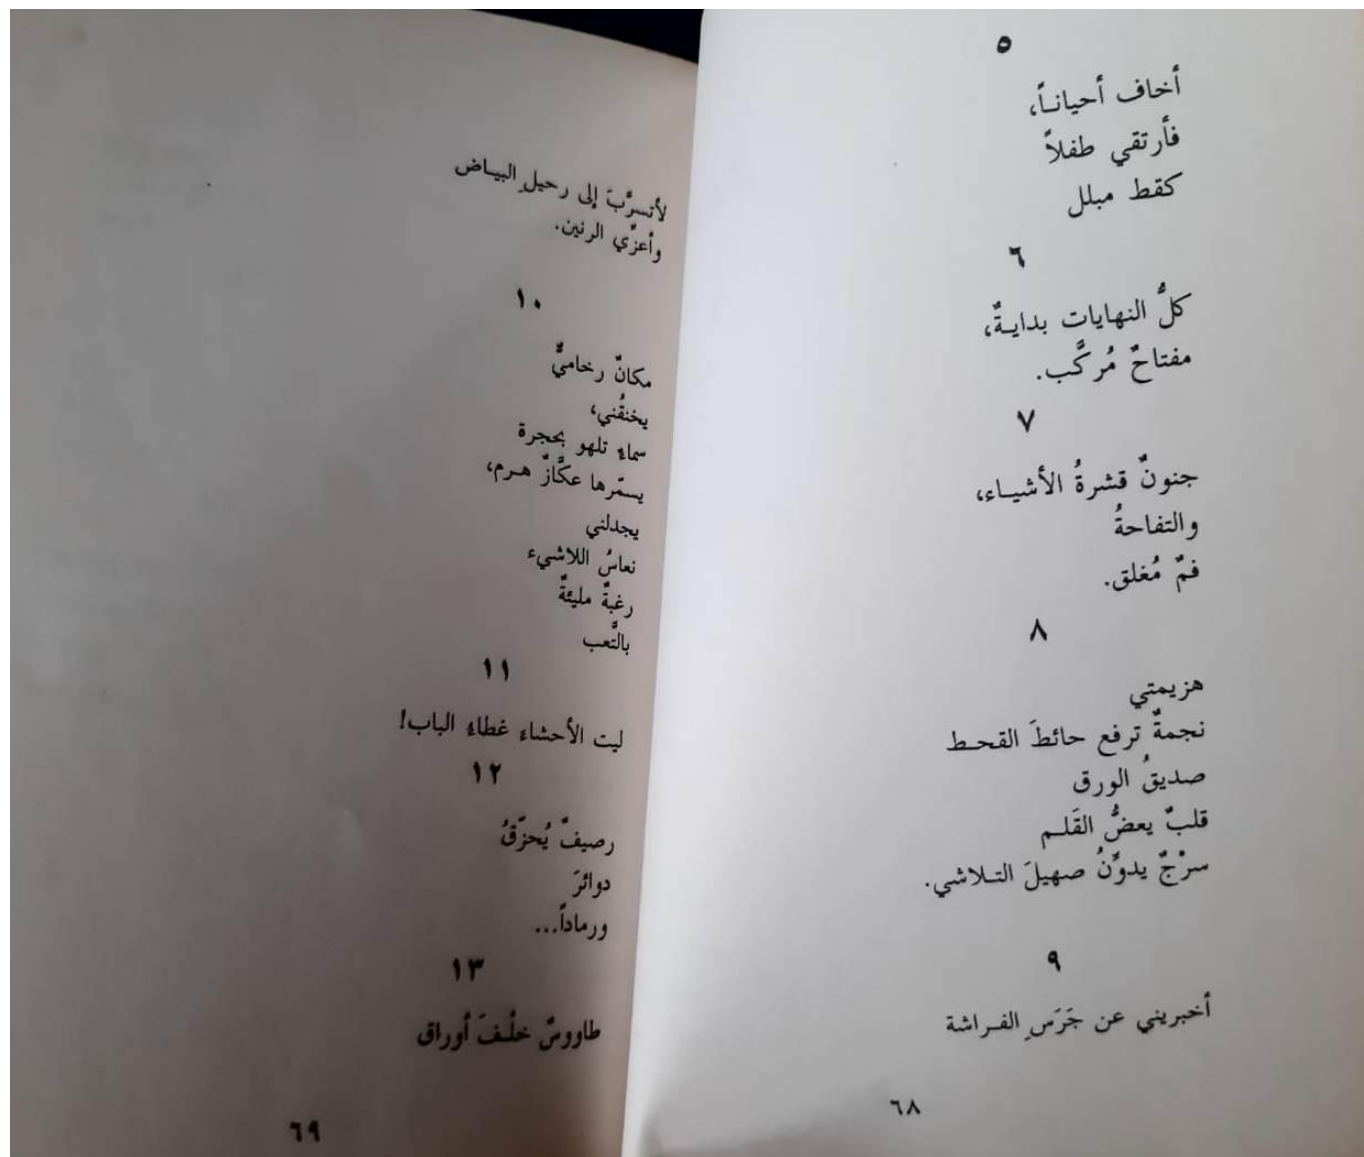 ٥
أخاف أحياناً،
فأرتقي طفلاً
كقط مبلل
٦
كلُّ النهايات بدايةٌ،
مفتاحٌ مُركَّب.
٧
جنونٌ قشرةُ الأشياء،
والتفاحةُ
فمٌ مُغلق.
٨
هزيمتي
نجمةٌ ترفع حائطَ القحط
صديقُ الورق
قلبٌ يعضُّ القَلم
سرْجٌ يدوِّنُ صهيلَ التلاشي.
٩
أخبريني عن جَرَسِ الفراشة
٦٨
لأتسرَّبَ إلى رحيلِ البياض
وأعزِّي الرنين.
١٠
مكانٌ رخاميٌّ
يخنقُني،
سماءٌ تلهو بحجرة
يسمّرها عكَّازٌ هرم،
يجدلني
نعاسُ اللاشيء
رغبةٌ مليئةٌ
بالتَّعب
١١
ليت الأحشاء غطاءُ الباب!
١٢
رصيفٌ يُحزّقُ
دوائرَ
ورماداً...
١٣
طاووسٌ خلْفَ أوراق
٦٩